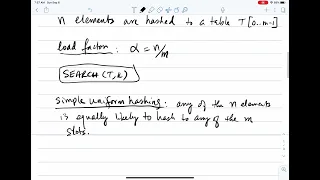 n elements are hashed to a table T[0..m-1]
load factor: α = n/m
SEARCH(T,k)
Simple uniform hashing: any of the n elements
is equally likely to hash to any of the m
slots.